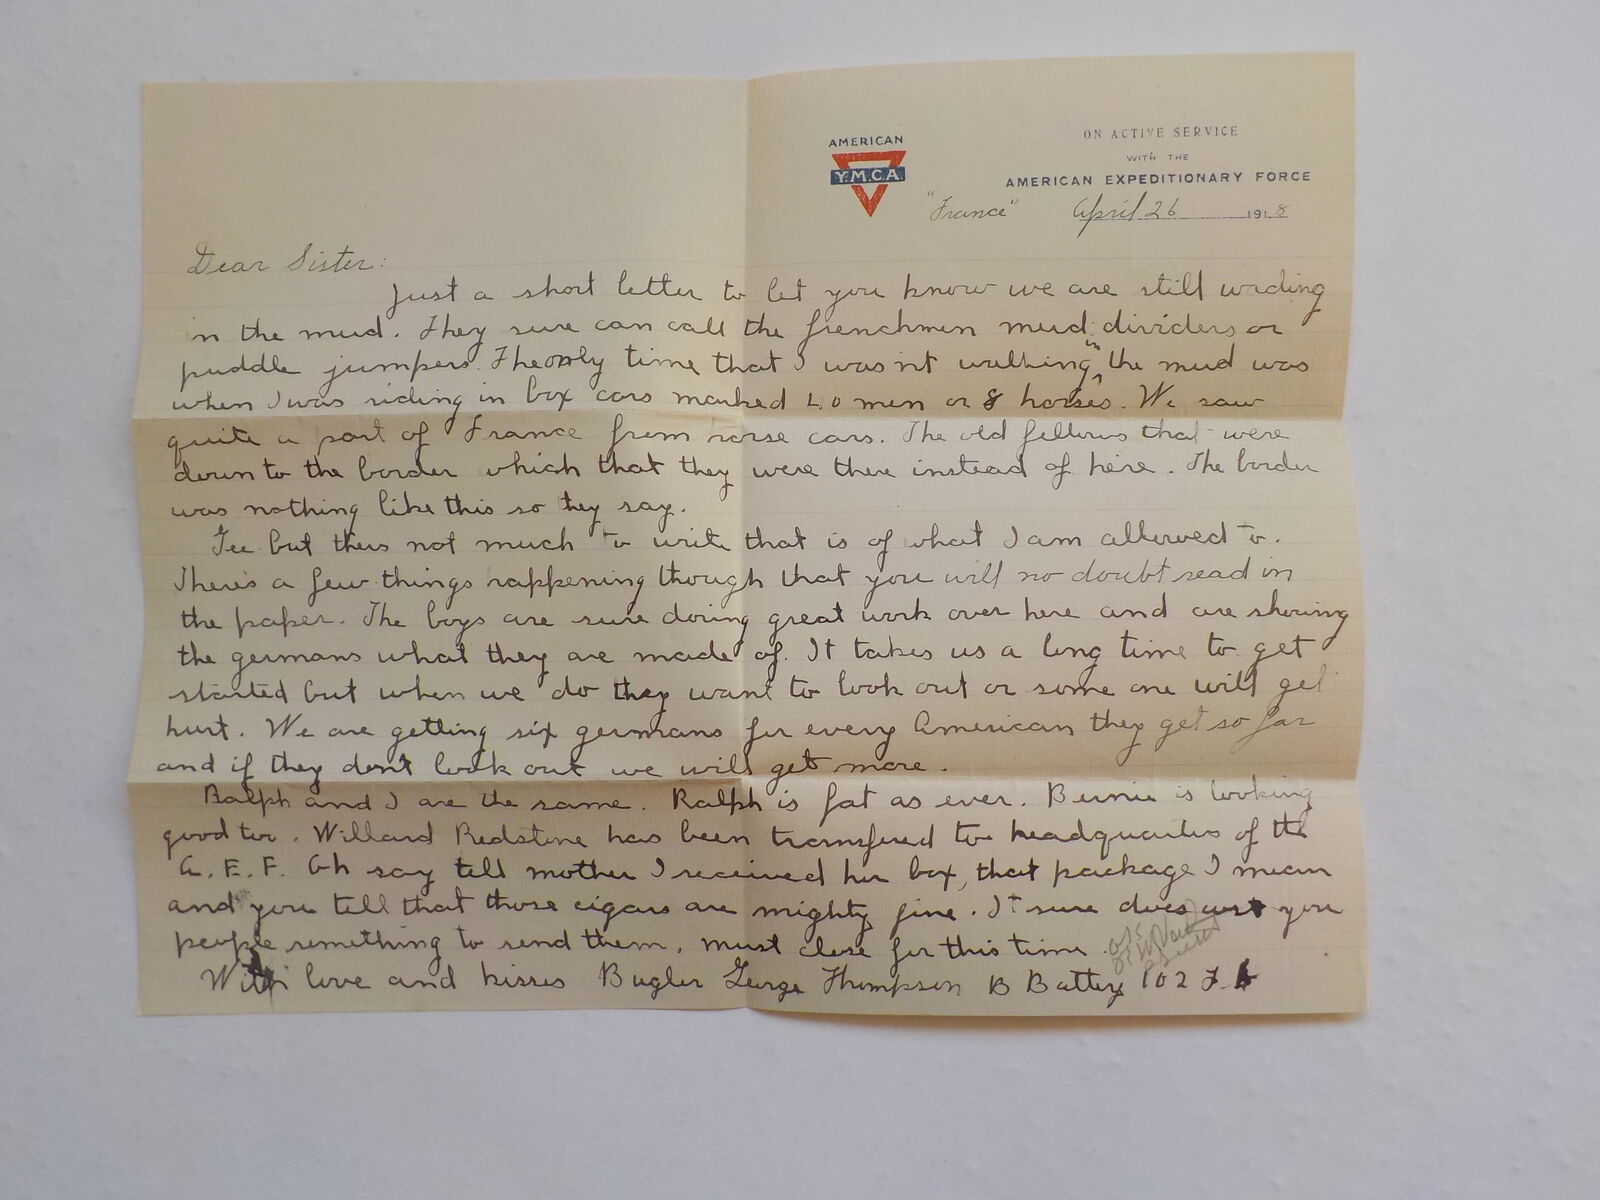 AMERICAN
Y.M.C.A.
ON ACTIVE SERVICE
WITH THE
AMERICAN EXPEDITIONARY FORCE
"France" April 26 1918
Dear Sister:
Just a short letter to let you know we are still wading
in the mud. They sure can call the frenchmen mud dividers or
puddle jumpers. The only time that I wasn't walking in the mud was
when I was riding in box cars marked 40 men or 8 horses. We saw
quite a part of France from horse cars. The old fellows that were
down to the border which that they were there instead of here. The border
was nothing like this so they say.
Gee but thers not much to write that is of what I am allowed to.
There's a few things happening though that you will no doubt read in
the paper. The boys are sure doring great work over here and are showing
the germans what they are made of. It takes us a long time to get
started but when we do they want to look out or some one will get
hurt. We are getting six germans for every American they get so far
and if they don't look out we will get more.
Ralph and I are the same. Ralph is fat as ever. Bernie is looking
good too. Willard Redstone has been transfered to headquarters of the
A. E. F. Oh say tell mother I received her box, that package I mean
and you tell that those cigars are mighty fine. It sure does cost you
people something to send them. Must close for this time.
With love and kisses Bugler George Thompson B Battery 102 F.A